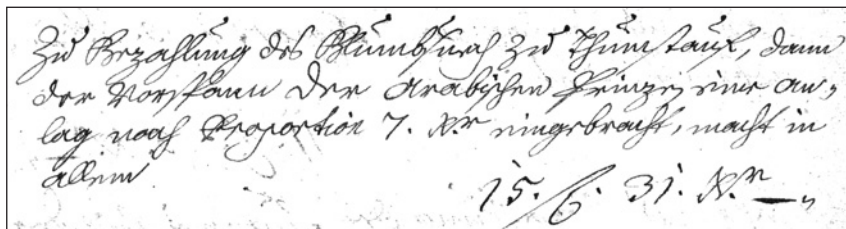 Zu Bezahlung des Blumbsuech zu Thumstauf, dann
der Vorspann der Arabischen Prinzen eine an„
lag nach Proportion 7. Xr eingebracht, macht in
allem
15. f. 31. Xr.